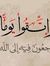 وَاتَّقُوا يَوْمًا
تُرْجَعُونَ فِيهِ إِلَى اللَّهِ